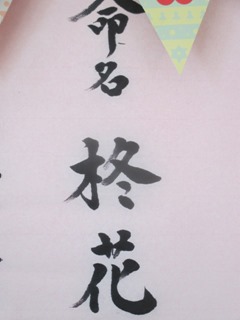 命名
柊花